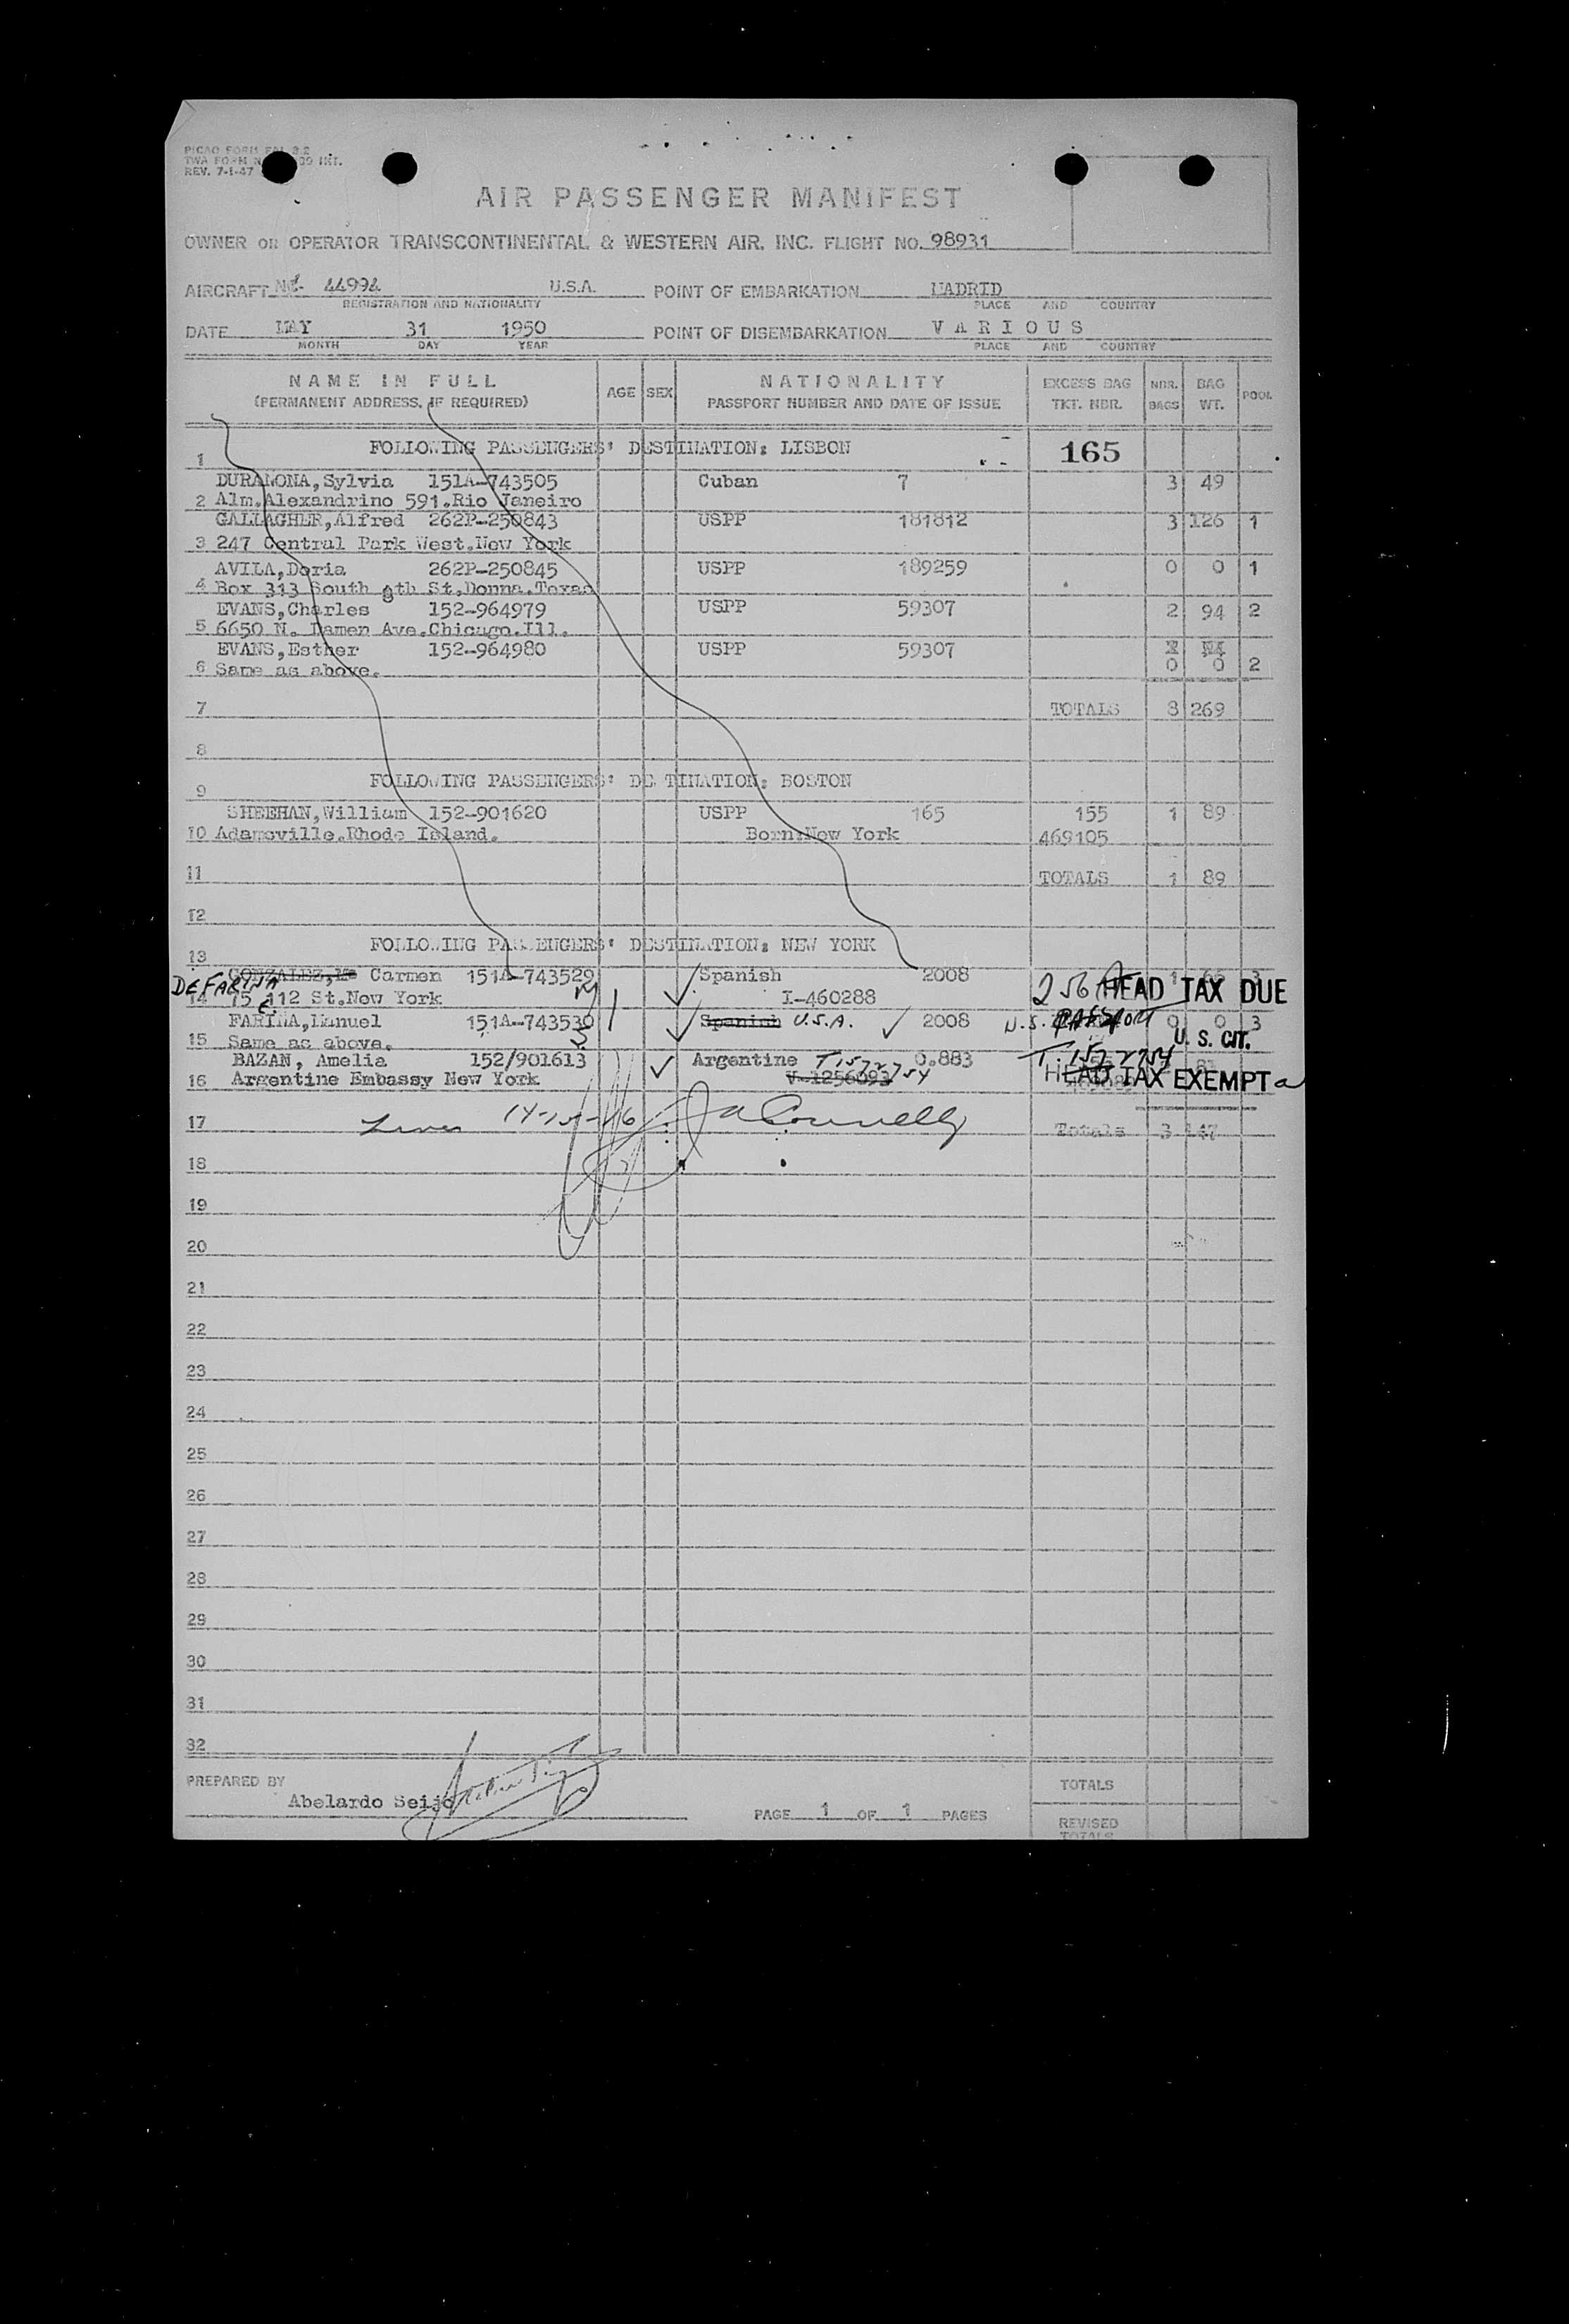 PICAO FORM FAL 3.2
TWA FORM
REV. 7-1-47
AIR PASSENGER MANIFEST
OWNER OR OPERATOR TRANSCONTINENTAL & WESTERN AIR, INC. FLIGHT NO. 98931
AIRCRAFT U.S.A. POINT OF EMBARKATION MADRID
REGISTRATION AND NATIONALITY PLACE AND COUNTRY
DATE MAY 31 1950 POINT OF DISEMBARKATION VARIOUS
MONTH DAY YEAR PLACE AND COUNTRY
NAME IN FULL AGE SEX NATIONALITY EXCESS BAG NBR. BAG POOL
(PERMANENT ADDRESS, IF REQUIRED) PASSPORT NUMBER AND DATE OF ISSUE TKT. NBR. BAGS WT.
1 FOLLOWING PASSENGERS' DESTINATION: LISBON 165
DURAMONA,Sylvia 151A-743505 Cuban 7 3 49
2 Alm.Alexandrino 591.Rio Janeiro
GALLAGHER,Alfred 262P-250843 USPP 181812 3 126 1
3 247 Central Park West.New York
AVILA,Doria 262P-250845 USPP 189259 0 0 1
4 Box 313 South 8th St.Donna.Texas
EVANS,Charles 152-964979 USPP 59307 2 94 2
5 6650 N. Damen Ave.Chicago.Ill.
EVANS,Esther 152-964980 USPP 59307
6 Same as above. 0 0 2
7 TOTALS 8 269
8
9 FOLLOWING PASSENGERS' DE TINATION: BOSTON
SHEEHAN,William 152-901620 USPP 165 155 1 89
10 Adamsville.Rhode Island. Born:New York 469105
11 TOTALS 1 89
12
13 FOLLOWING PASSENGERS' DESTINATION: NEW YORK
GONZALEZ, Carmen 151A-743529 Spanish 2008 1 3
DE FARINA
14 15 E 112 St.New York I-460288 256 HEAD TAX DUE
FARINA,Manuel 151A-743530 Spanish U.S.A. 2008 U.S. PASSPORT 0 0 3
15 Same as above. U. S. CIT.
BAZAN, Amelia 152/901613 Argentine T1572754 0.883 T.1572754
16 Argentine Embassy New York V-1256093 HEAD TAX EXEMPT
17 Connelly Totals 3 147
18
19
20
21
22
23
24
25
26
27
28
29
30
31
32
PREPARED BY TOTALS
Abelardo Seijo
PAGE 1 OF 1 PAGES REVISED
TOTALS